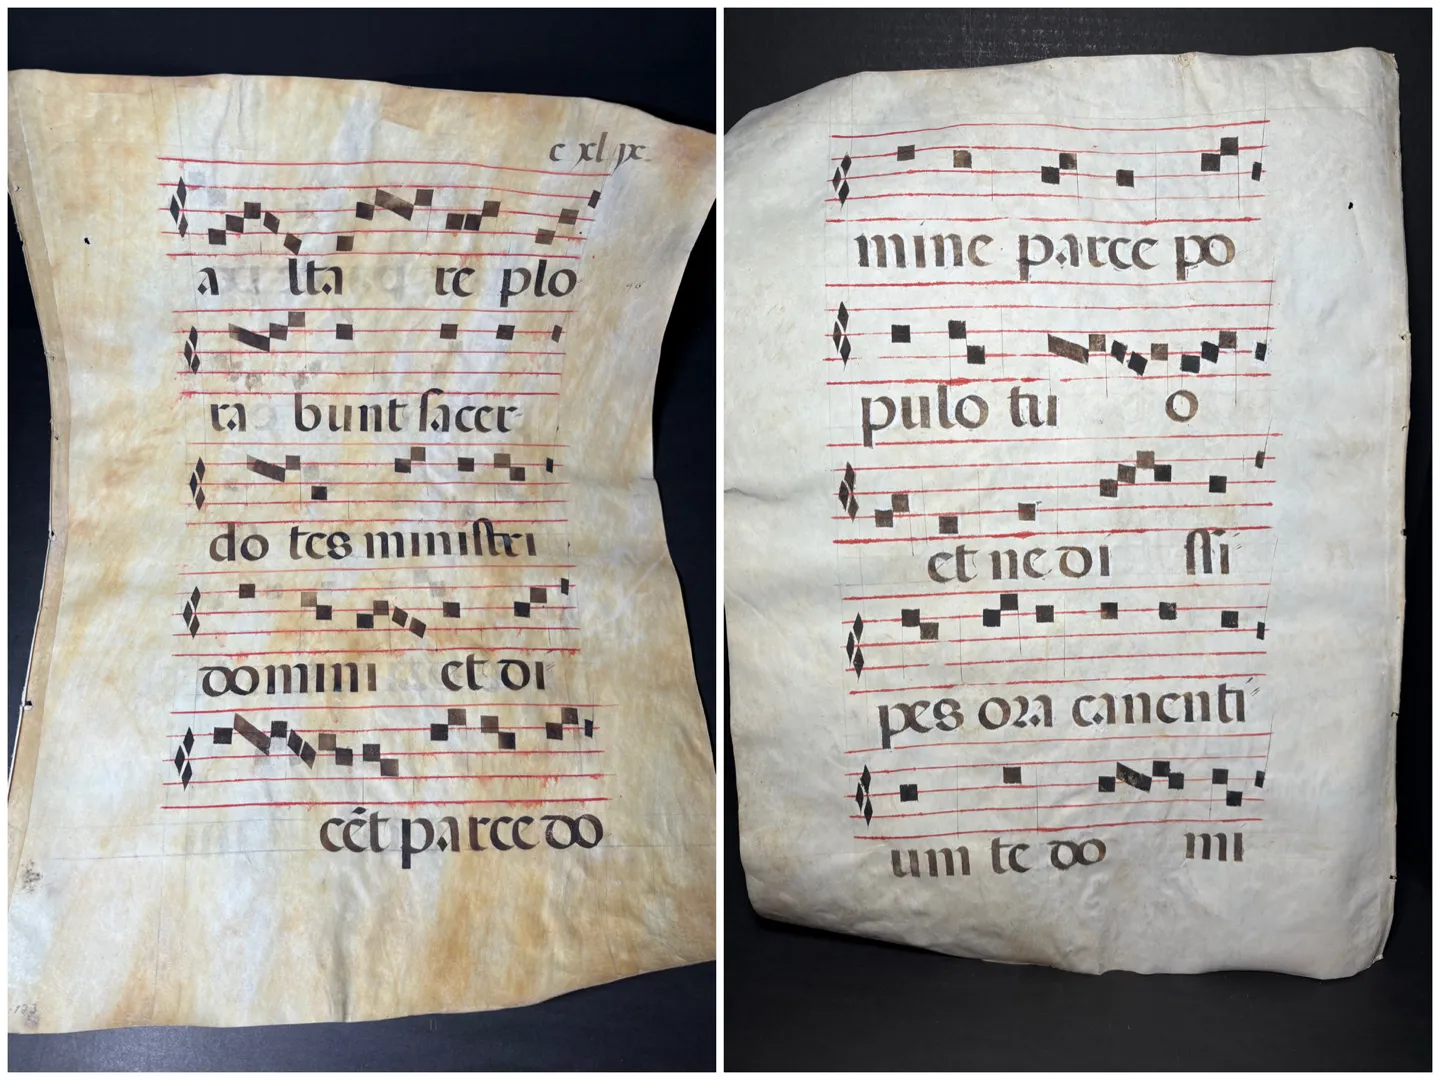 c xl ix.
a lta re plo
ra bunt sacer-
do tes ministri
domini et di
cēt parce do
mine parce po
pulo tu o
et ne di ssi
pes ora canenti
um te do mi